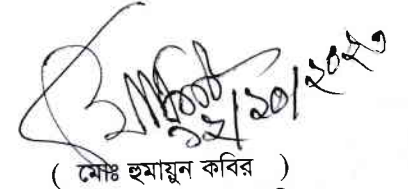 ১২/১০/২০২৩
( মোঃ হুমায়ুন কবির )